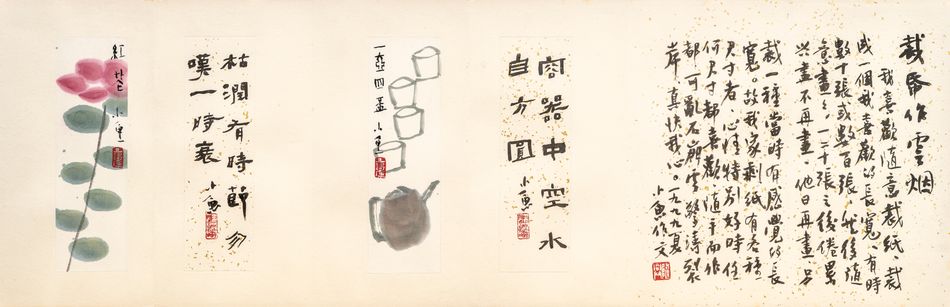 裁帋作雲烟
我喜歡隨意裁紙、裁
成一個我喜歡的長寬、有時
數十張或數百張、然後隨
意畫之、一二十張之後倦累
兴盡不再畫、他日再畫、另
裁一種當時有感覺的長
寬。故我家剩紙有各種
尺寸者、心情特別好時任
何尺寸都喜歡隨手而作
都可亂石崩雲驚濤裂
岸、真快我心。一九九九夏
小魚作文
容器中空水
自方圓
小魚
一壺四盃 小魚
枯潤有時節勿
嘆一時衰
小魚
紅花 小魚